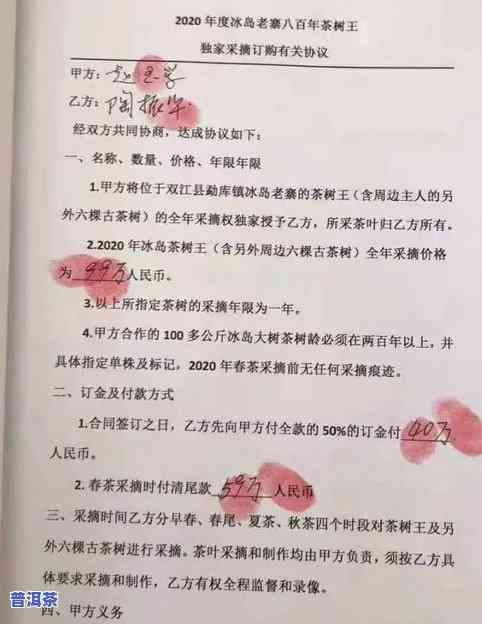 2020 年度冰岛老寨八百年茶树王
独家采摘订购有关协议
甲方：赵玉学
乙方：陶振华
经双方共同协商，达成协议如下：
一、名称、数量、价格、年限年限
1.甲方将位于双江县勐库镇冰岛老寨的茶树王（含周边主人的另
外六棵古茶树）的全年采摘权独家授予乙方，所采茶叶归乙方所有。
2.2020 年冰岛茶树王（含另外周边六棵古茶树）全年采摘价格
为 99万 人民币。
3.以上所指定茶树的采摘年限为一年。
4.甲方合作的 100 多公斤冰岛大树茶树龄必须在两百年以上，并
具体指定单株及标记，2020 年春茶采摘前无任何采摘痕迹。
二、订金及付款方式
1.合同签订之日，乙方先向甲方付全款的 50%的订金付 40万
人民币。
2. 春茶采摘时付清尾款 59万 人民币
三、采摘时间乙方分早春、春尾、夏茶、秋茶四个时段对茶树王及另
外六棵古茶树进行采摘。茶叶采摘和制作均由甲方负责，须按乙方具
体要求采摘和制作，乙方有权全程监督和录像。
四、甲方义务
普洱茶